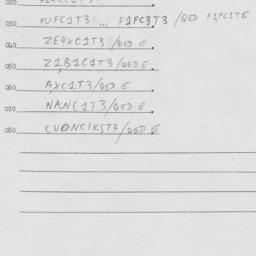 020
030 FUFC1T3 ... F1FC3T3 /QED F1FC1TE
040 ZE4XC1T3/QED E
050 Z1B1C1T3/QED E
060 AXC1T3/QED E
070 NANC1T3/QED E
080 CVONC1KST3/QED E